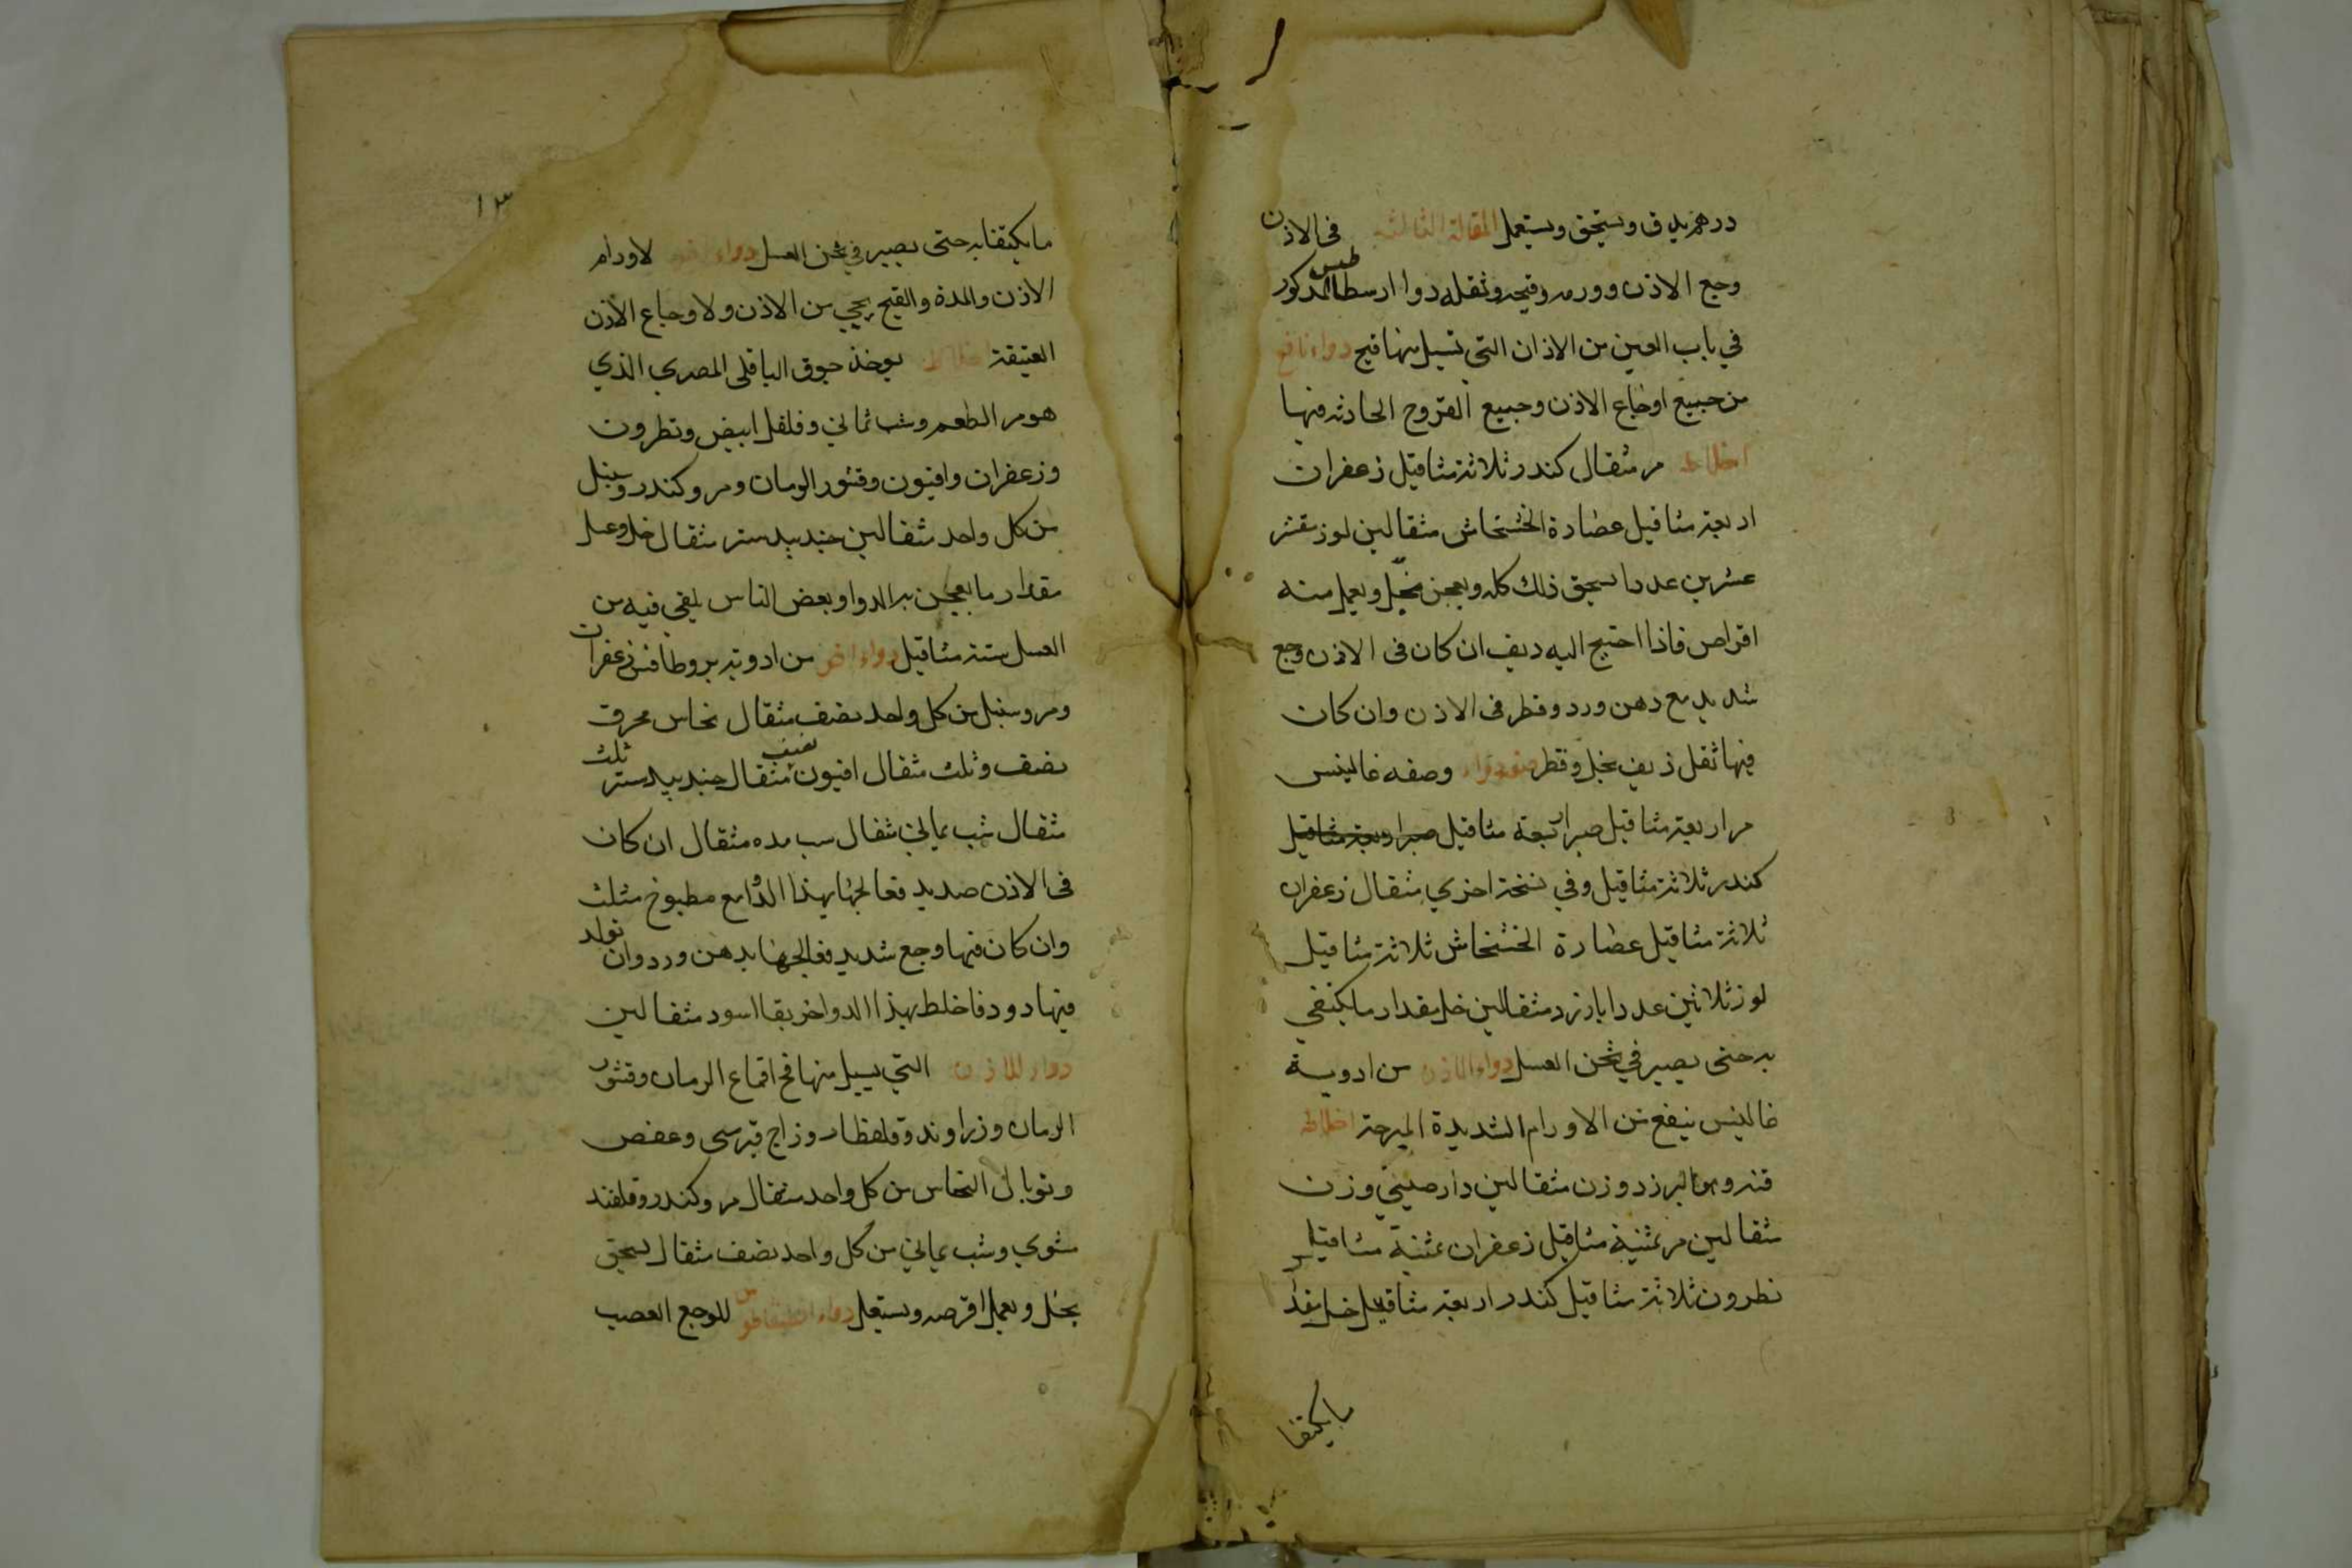 درهم يدق ويستحق ويستعمل المقالة الثالثة فى الاذن
وجع الاذن وورمه وقيحه وثقله دوا ارسطاطيس المذكور
في باب العين من الاذان التى تسيل منها قيح دواء نافع
من جميع اوجاع الاذن وجميع القروح الحادثه فيها
اخلاطه مر مثقال كندر ثلاثة مثاقيل زعفران
اربعة مثاقيل عصارة الخشخاش مثقالين لوز مقشر
عشرين عددا يسحق ذلك كله ويعجن بخل ويعمل منه
اقراص فاذا احتيج اليه ديف ان كان فى الاذن وجع
شديد مع دهن ورد وقطر فى الاذن وان كان
فيها ثقل ذيف بخل وقطر وصفه غالينس
مر اربعة مثاقيل صبر اربعة مثاقيل صبر اربعة مثاقيل
كندر ثلاثة مثاقيل وفي نسخة اخري مثقال زعفران
ثلاثة مثاقيل عصارة الخشخاش ثلاثة مثاقيل
لوز ثلاثين عددا بارزد مثقالين خل مقدار ما يكتفي
به حتى يصير في ثخن العسل دواء للاذن من ادوية
غالينس ينفع من الاورام الشديدة المبرحة اخلاطه
قنه وهو البرزد وزن مثقالين دارصيني وزن
مثقالين مر ثمنية مثاقيل زعفران ثمنية مثاقيل
نطرون ثلاثة مثاقيل كندر اربعة مثاقيل خل مقدار
مايكتفا
١٣
مايكتفا به حتى يصير في ثخن العسل دواء اخر لاورام
الاذن والمدة والقيح يجي من الاذن ولاوجاع الاذن
العتيقة اخلاطه يوخذ جوق الباقلى المصري الذي
هو مر الطعم وشب ثماني وفلفل ابيض ونطرون
وزعفران وافيون وقشور الرمان ومر وكندر وسنبل
من كل واحد مثقالين جندبيدستر مثقال خل وعسل
مقدار ما يعجن به الدوا وبعض الناس يلقي فيه من
العسل ستة مثاقيل دواء اخر من ادوية بروطافس زعفران
ومر وسنبل من كل واحد نصف مثقال نحاس محرق
نصف وثلث مثقال افيون نصف مثقال جندبيدستر ثلث
مثقال شب يماني مثقال سب مده مثقال ان كان
فى الاذن صديد فعالجها بهذا الدوا مع مطبوخ مثلث
وان كان فيها وجع شديد فعالجها بدهن ورد وان تولد
فيها دود فاخلط بهذا الدوا خربقا اسود مثقالين
دواء للاذن التي يسيل منها قح اقماع الرمان وقشور
الرمان وزراوند وقلقطار وزاج قبرسى وعفص
وتوبال النحاس من كل واحد مثقال مر وكندر وقلقند
مشوي وشب يماني من كل واحد نصف مثقال يسحق
بخل ويعمل اقرصه ويستعمل دواء للوجع العصب